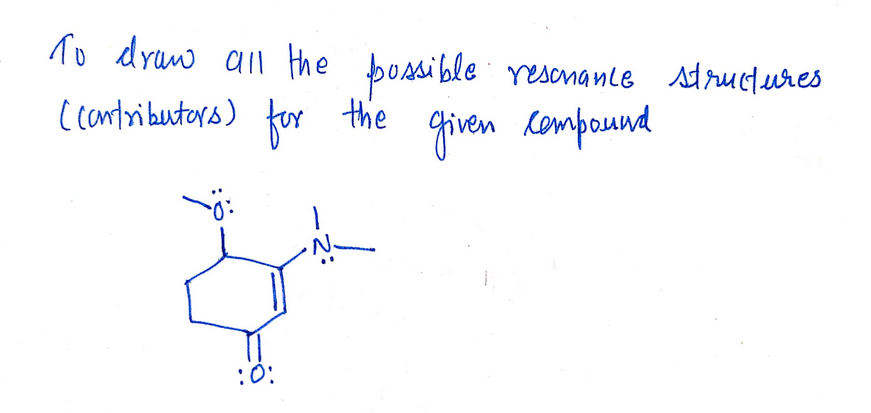 To draw all the possible resonance structures
(contributors) for the given compound
:Ö:
N
:O: